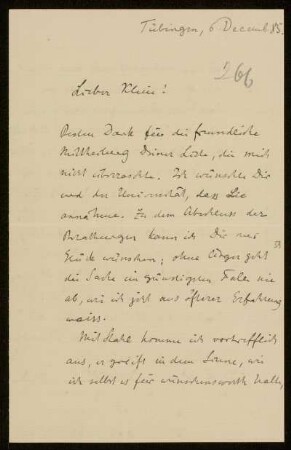 Tübingen, 6 Decemb 85.
266
Lieber Klein!
Besten Dank für die freundliche
Mittheilung Deiner Liste, die mich
nicht überraschte. Ich wünschte Dir
und der Universität, dass Lie
annähme. Zu dem Abschluss der
Berathungen kann ich Dir nur
Glück wünschen; ohne Ärger geht
die Sache im günstigsten Falle nie
ab, wie ich jetzt aus öfterer Erfahrung
weiss.
Mit Stahl komme ich vortrefflich
aus, er greift in dem Sinne, wie
ich selbst es für wünschenswerth halte,